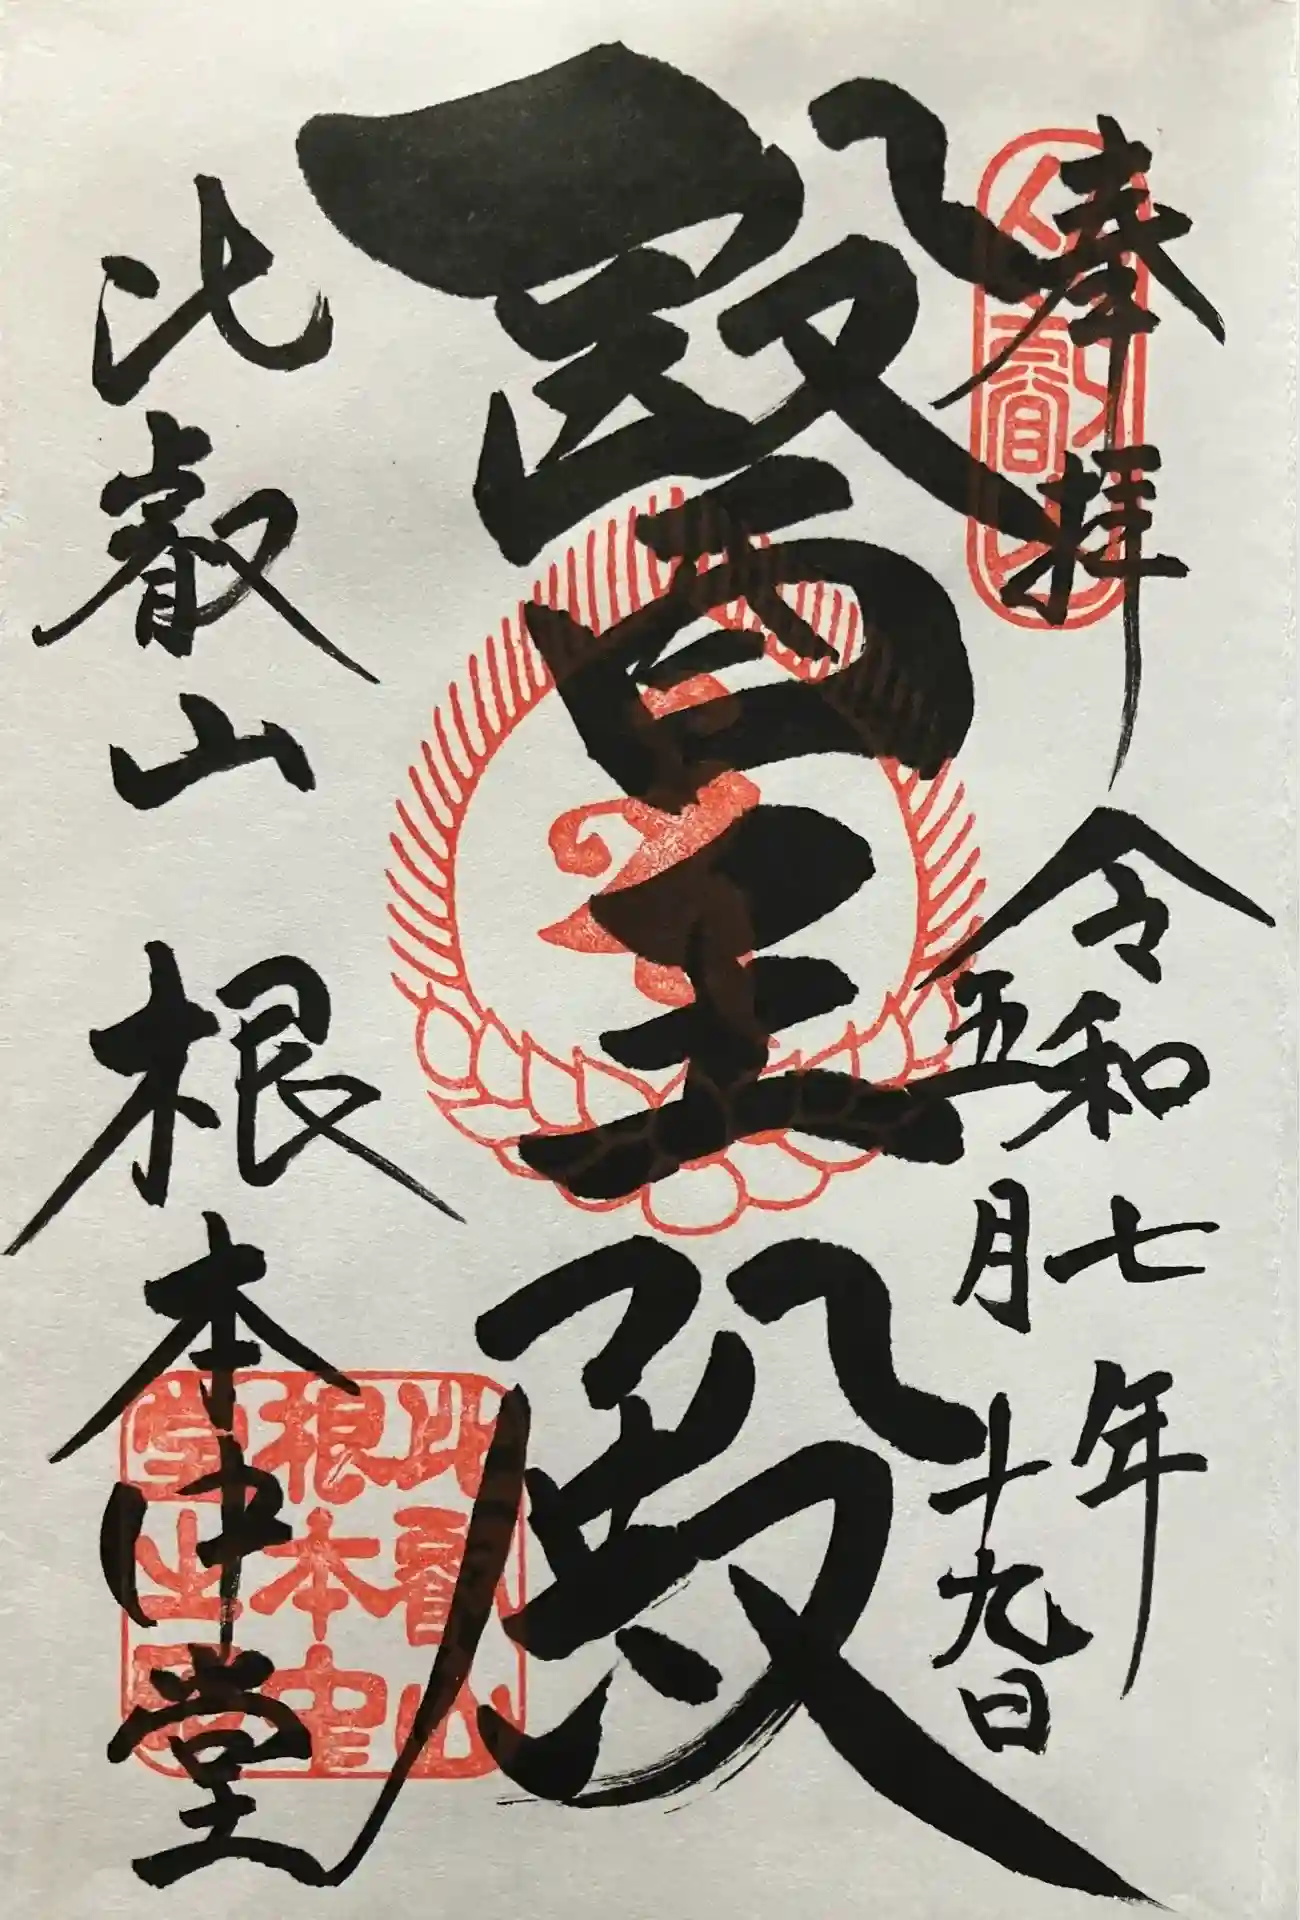 奉拝
令和七年
五月十九日
醫王殿
比叡山
根本中堂
比叡山
根本中
堂之印